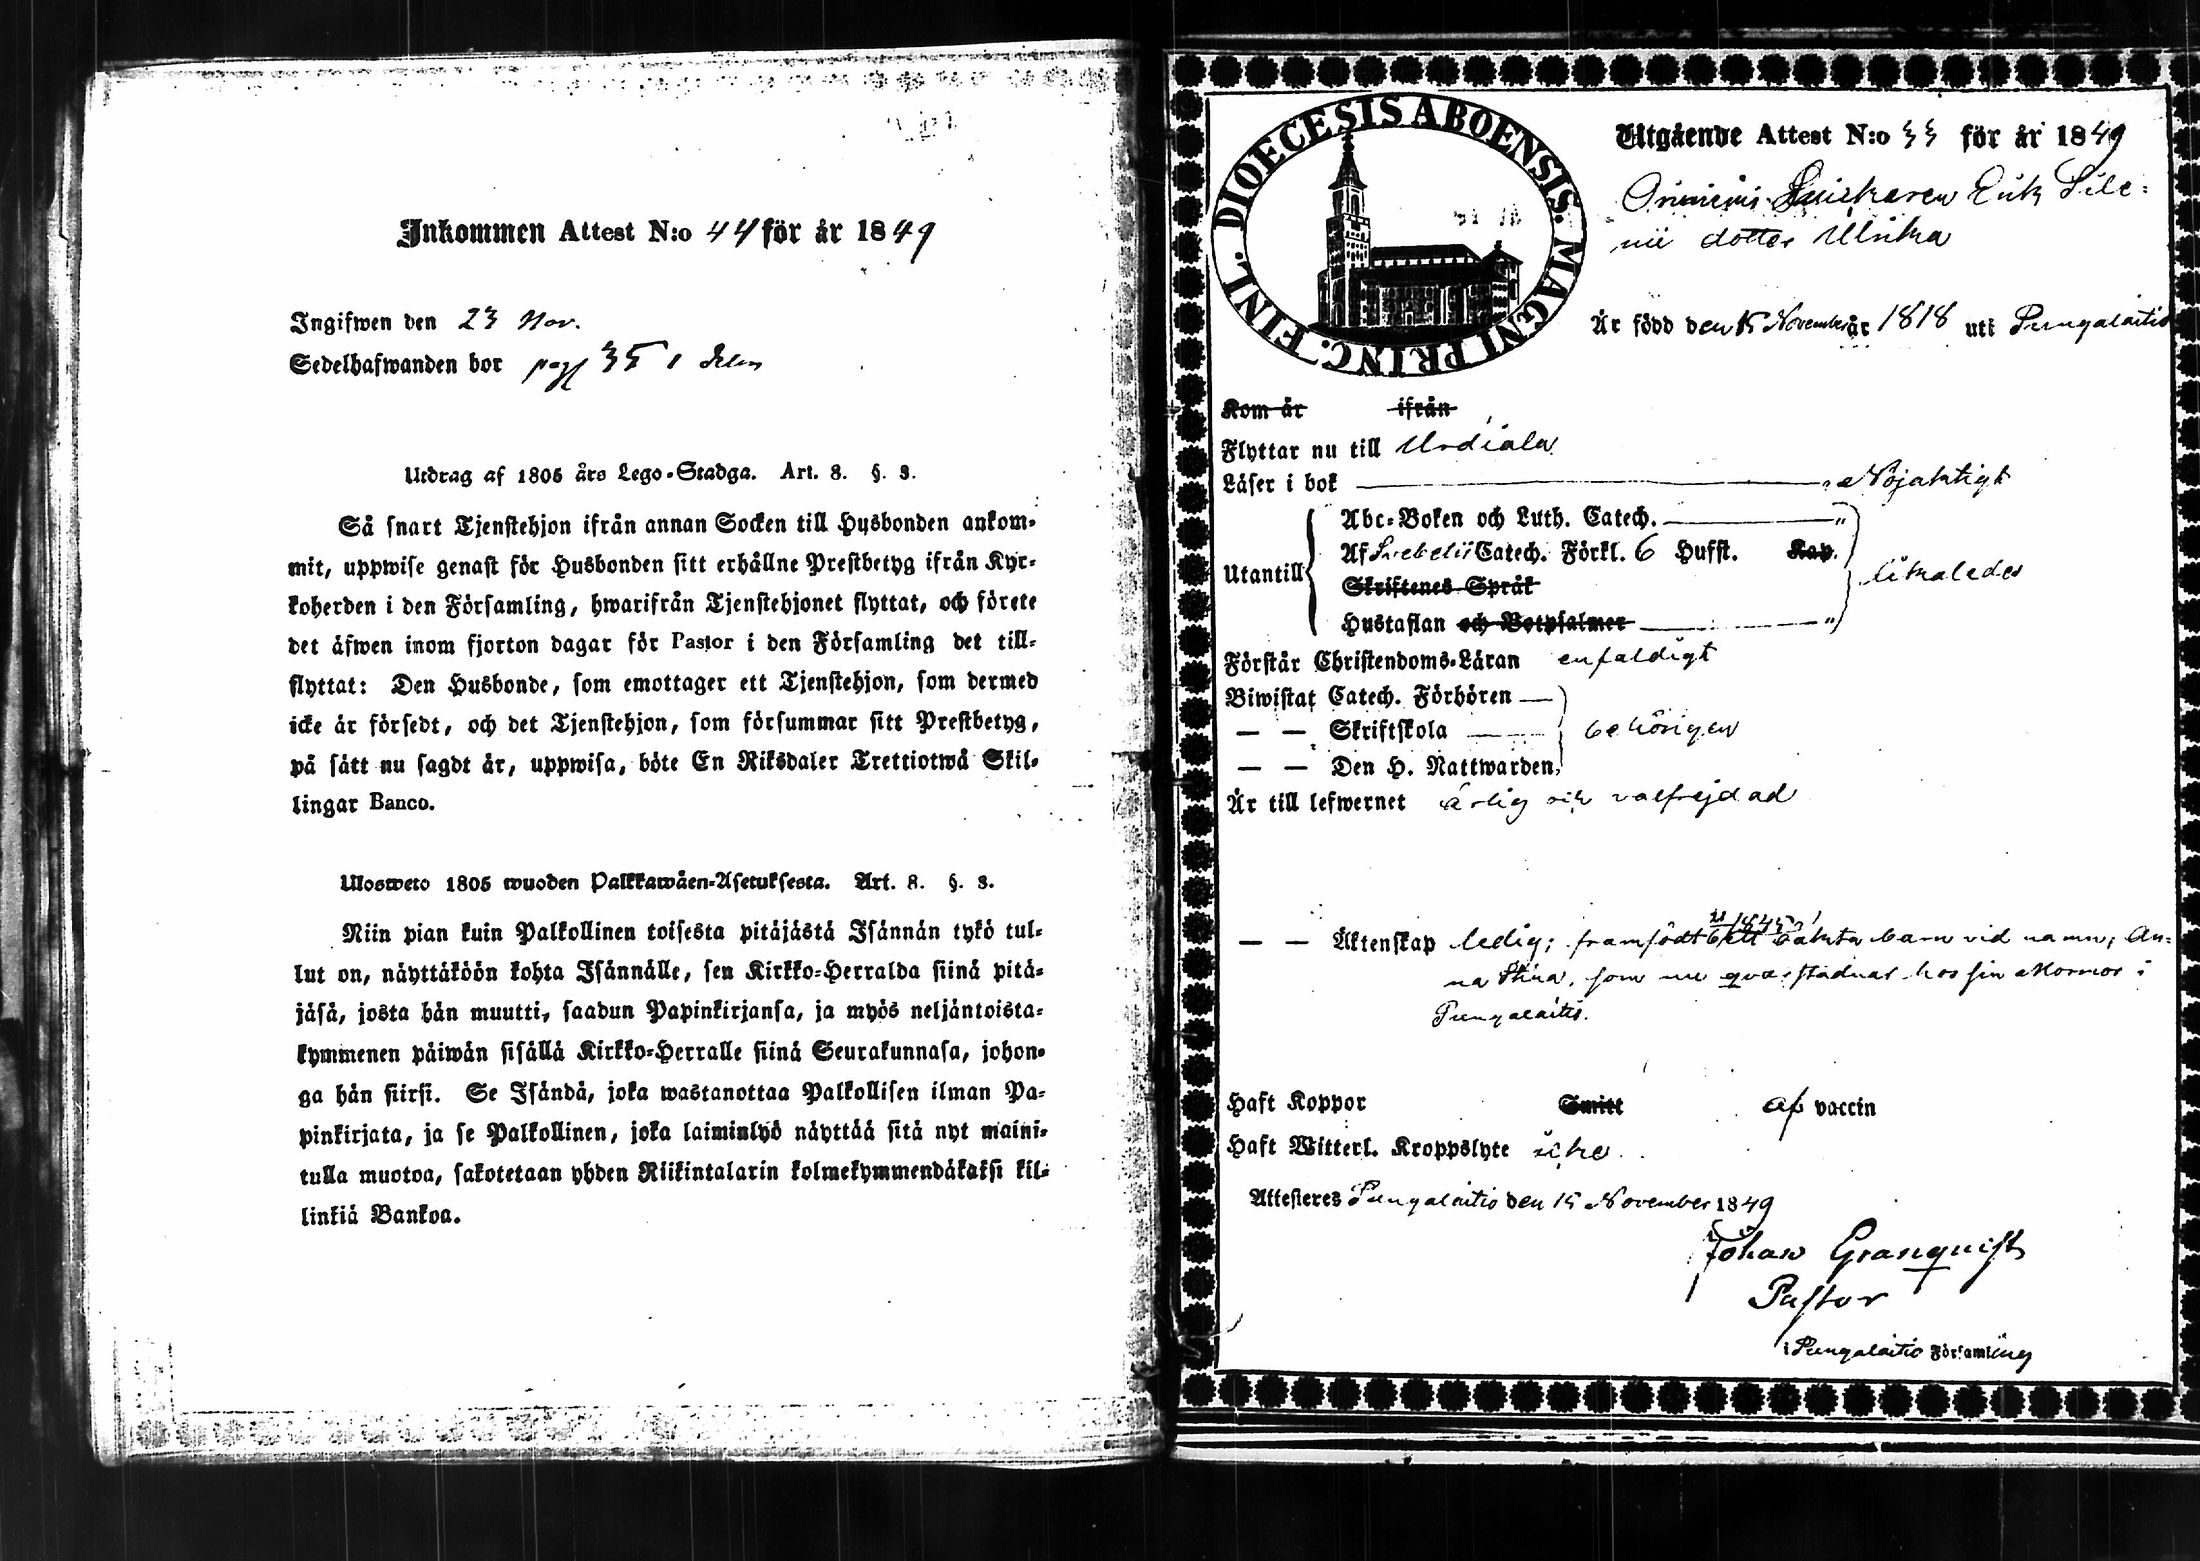 Inkommen Attest N:o 44 för år 1849
Ingifwen den 23 Nov.
Sedelhafwanden bor pag 35 1 delen
Utdrag af 1805 års Lego-Stadga. Art. 8. §. 3.
Så snart Tjenstehjon ifrån annan Socken till Husbonden ankom-
mit, uppwise genast för Husbonden sitt erhållne Prestbetyg ifrån Kyr-
koherden i den Församling, hwarifrån Tjenstehjonet flyttat, och förete
det äfwen inom fjorton dagar för Pastor i den Församling det till-
flyttat: Den Husbonde, som emottager ett Tjenstehjon, som dermed
icke är försedt, och det Tjenstehjon, som försummar sitt Prestbetyg,
på sätt nu sagdt är, uppwisa, böte En Riksdaler Trettiotwå Skil-
lingar Banco.
Ulosweto 1805 wuoden Palkkawäen-Asetuksesta. Art. 8. §. 3.
Niin pian kuin Palkollinen toisesta pitäjästä Isännän tykö tul-
lut on, näyttäköön kohta Isännälle, sen Kirkko-Herralda siinä pitä-
jäsä, josta hän muutti, saadun Papinkirjansa, ja myös neljäntoista-
kymmenen päiwän sisällä Kirkko-Herralle siinä Seurakunnasa, johon-
ga hän siirsi. Se Isändä, joka wastanottaa Palkollisen ilman Pa-
pinkirjata, ja se Palkollinen, joka laiminlyö näyttää sitä nyt maini-
tulla muotoa, sakotetaan yhden Riikintalarin kolmekymmendäkaksi kil-
linkiä Bankoa.
DIOECESIS ABOENSIS. MAGNI PRINC. FINL.
Utgående Attest N:o 33 för år 1849
Erik Sile-
nii dotter Ulrika
Är född den 15 November år 1818 uti Pungalaitio
Kom år ifrån
Flyttar nu till Urdiala
Läser i bok Nöjaktigt
Utantill
Abc-Boken och Luth. Catech.
Af Svebelii Catech. Förkl. 6 Hufst. Kap.
Skriftenes Språk
Hustaflan och Botpsalmer
likaledes
Förstår Christendoms-Läran enfaldigt
Biwistat Catech. Förhören
— — Skriftskola behörigen
— — Den H. Nattwarden,
Är till lefwernet ärlig och välfrejdad
— — Äktenskap ledig; framfödt 1845 ett oäkta barn vid namn, An-
na Stina, som nu qvarstadnat hos sin Mormor i
Pungalaitio.
Haft Koppor Smitt af vaccin
Haft Witterl. Kroppslyte icke
Attesteres Pungalaitio den 15 November 1849
Johan Granqvist
Pastor
i Pungalaitio Församling